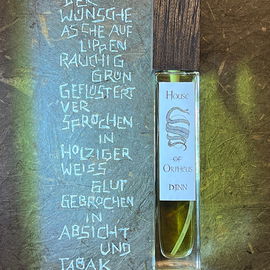 DER
WÜNSCHE
ASCHE AUF
LIPPEN
RAUCHIG
GRÜN
GEFLÜSTERT
VER
SPROCHEN
IN
HOLZIGER
WEISS
GLUT
GEBROCHEN
IN
ABSICHT
UND
TABAK
HOUSE
OF
ORPHEUS
DJINN